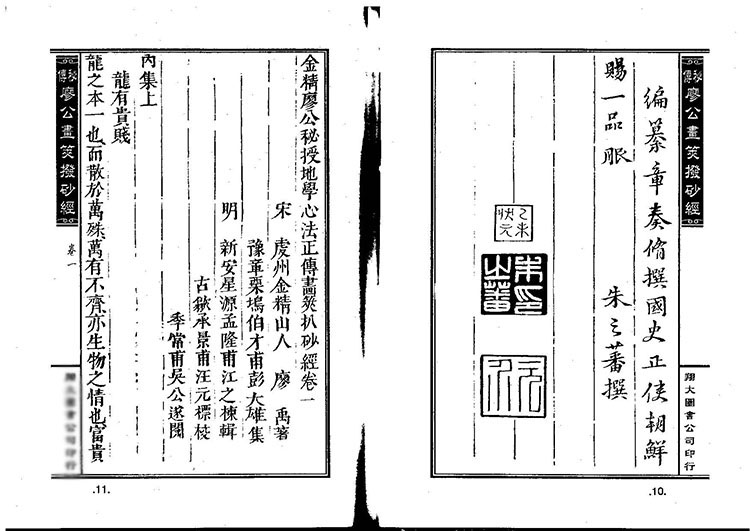 秘傳
廖公畫筴撥砂經
翔大圖書公司印行
編纂章奏脩撰國史正使朝鮮
賜一品服
朱之蕃撰
乙未狀元
朱印之蕃
.10.
金精廖公秘授地學心法正傳畫筴扒砂經卷一
宋 虔州金精山人 廖 禹著
豫章栗塢伯才甫彭大雄集
明 新安星源孟隆甫江之棟輯
古歙承景甫汪元標校
季常甫吳公遂閱
內集上
龍有貴賤
龍之本一也而散於萬殊萬有不齊亦生物之情也富貴
秘傳
廖公畫筴撥砂經
卷一
翔大圖書公司印行
.11.